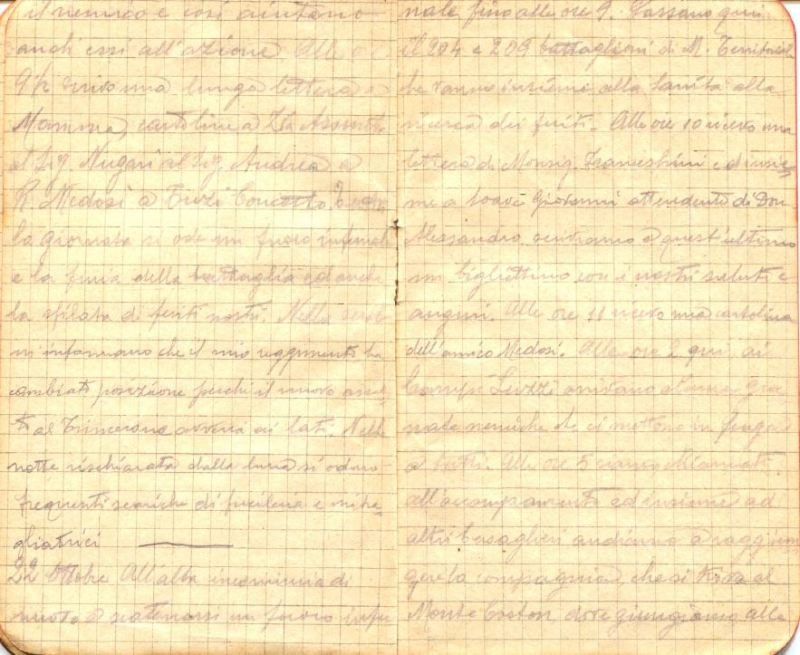 il nemico e così aiutano
anch'essi all'azione. Alle ore
9½ scrivo una lunga lettera a
Mamma, cartoline a Zia Assunta
al Sig. Nugni al Sig. Andrea a
R. Medosi a Tuzi Concetto. Tutta
la giornata si ode un fuoco infernale
e la furia della battaglia ed anche
la sfilata di feriti nostri. Nella serata
m'informano che il mio reggimento ha
cambiato posizione perchè il nuovo assal-
to al Trincerone avverrà ai lati. Nella
notte rischiarata dalla luna si odono
frequenti scariche di fucileria e mitra-
gliatrici
22 Ottobre All'alba incomincia di
nuovo a scatenarsi un fuoco infer
nale fino alle ore 9. Passano qui
il 204 e 209 battaglioni di M. Territoriale
che vanno insieme alla Sanità alla
ricerca dei feriti. Alle ore 10 ricevo una
lettera di Monsig. Franceschini ed insie-
me a Soave Giovanni attendente di Don
Alessandro scriviamo a quest'ultimo
un bigliettino con i nostri saluti e
auguri. Alle ore 11 ricevo una cartolina
dell'amico Medosi. Alle ore 2 qui ai
Campi Luzzi arrivano alcune gra
nate nemiche che ci mettono in fuga
a tutti. Alle ore 5 siamo chiamati
all'accampamento ed insieme ad
altri bersaglieri andiamo a raggiun
gere la compagnia, che si trova al
Monte Coston dove giungiamo alle